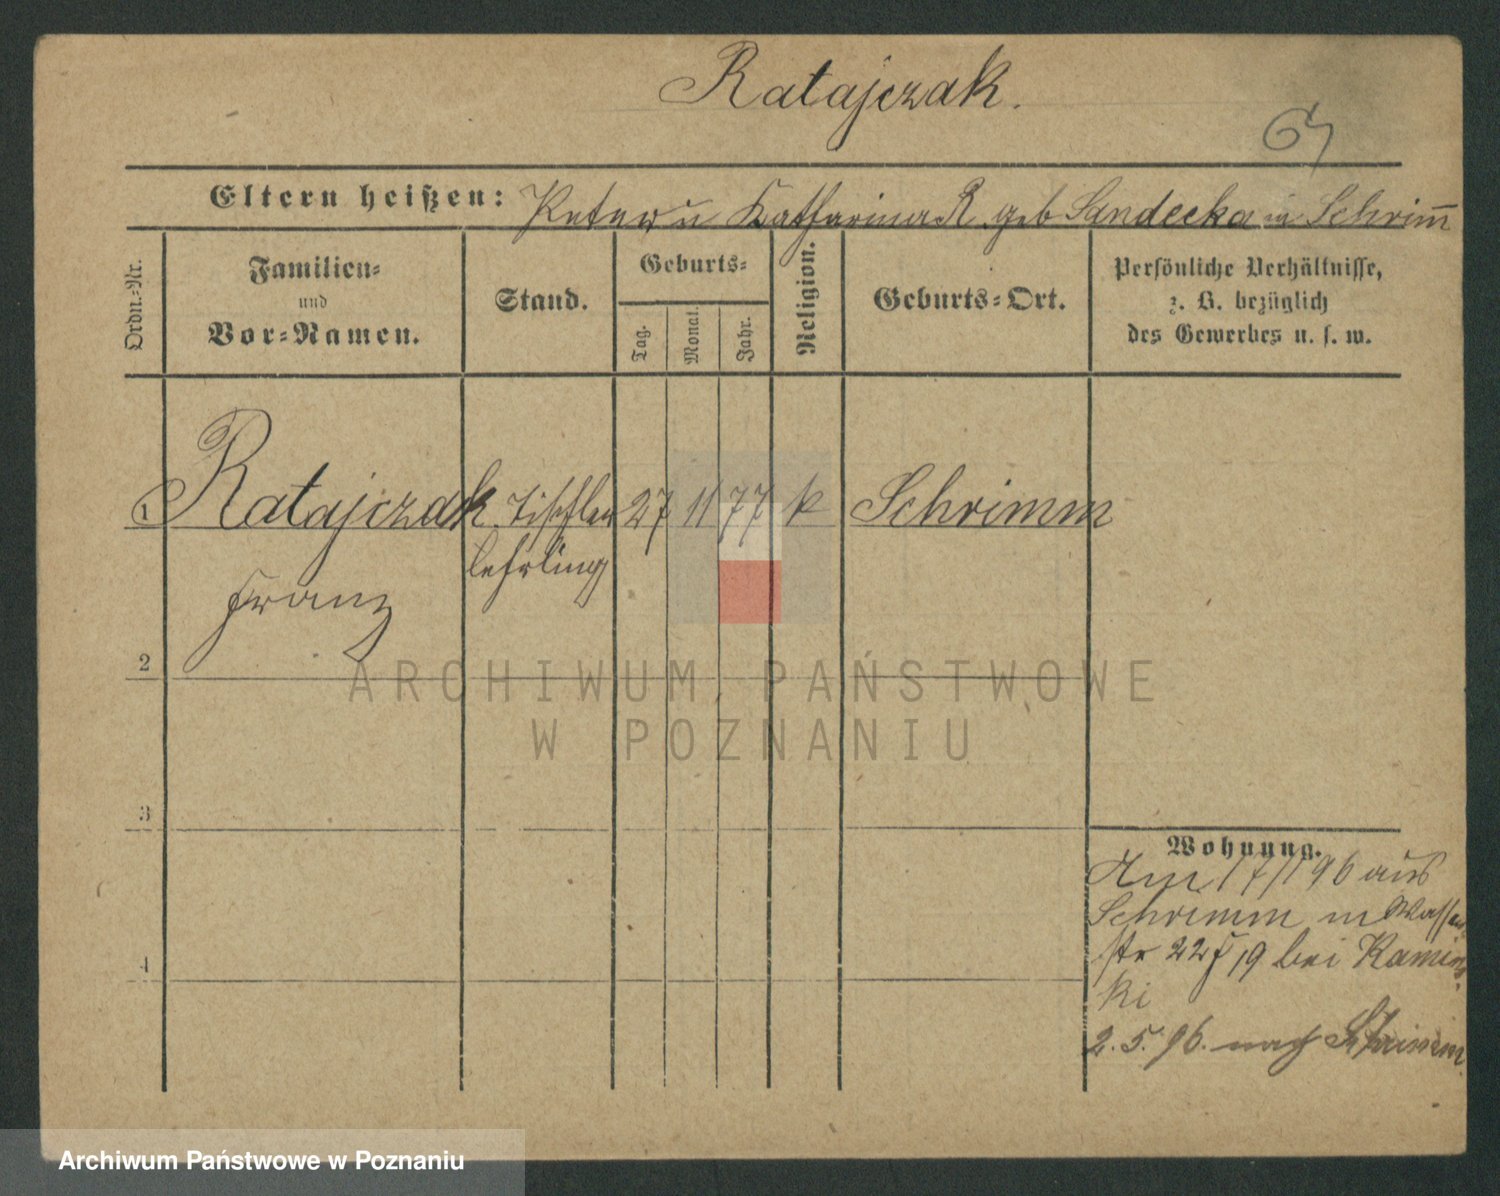 Ratajczak.
64
Eltern heißen: Peter u Katharina R. geb Sandecka in Schrim̅
Ordn.-Nr.
Familien-
und
Vor-Namen.
Stand.
Geburts-
Tag.
Monat.
Jahr.
Religion.
Geburts-Ort.
Persönliche Verhältnisse,
z. B. bezüglich
des Gewerbes u. s. w.
1 Ratajczak Tischler 27 11 77 k Schrimm
lehrling
Franz
2
ARCHIWUM PAŃSTWOWE
W POZNANIU
3
Wohnung.
Am 17/1 96 aus
Schrimm n Wasser
str 22 19 bei Kamins
ki
4
2.5.96. nach Schrimm
Archiwum Państwowe w Poznaniu